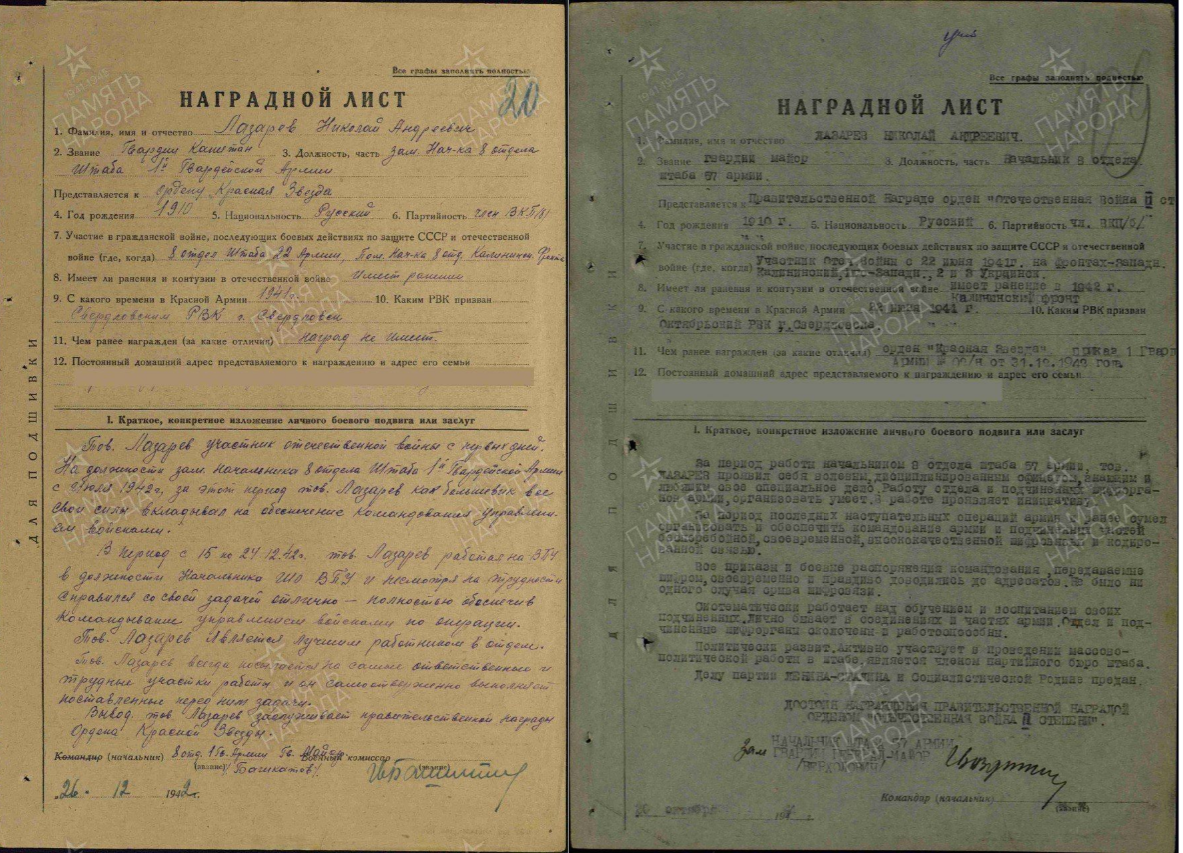 Все графы заполнять полностью
20
НАГРАДНОЙ ЛИСТ
1. Фамилия, имя и отчество Лазарев Николай Андреевич
2. Звание Гвардии Капитан 3. Должность, часть зам. Нач-ка 8 отдела
Штаба 1й Гвардейской Армии
Представляется к ордену Красная Звезда
4. Год рождения 1910 5. Национальность Русский 6. Партийность член ВКП/б/
7. Участие в гражданской войне, последующих боевых действиях по защите СССР и отечественной
войне (где, когда) 8 отдел Штаба 22 Армии, Пом. Нач-ка 8 отд. Калининск. Фронта
8. Имеет ли ранения и контузии в отечественной войне Имеет ранение
9. С какого времени в Красной Армии 1941 г. 10. Каким РВК призван
Свердловским РВК г. Свердловск
11. Чем ранее награжден (за какие отличия) наград не имеет.
12. Постоянный домашний адрес представляемого к награждению и адрес его семьи
I. Краткое, конкретное изложение личного боевого подвига или заслуг
Тов. Лазарев участник отечественной войны с первых дней.
На должности зам. начальника 8 отдела Штаба 1й Гвардейской Армии
с 1942г, за этот период тов. Лазарев как большевик все
свои силы вкладывал на обеспечение командования управлени-
ем войсками.
В период с 15 по 24.12.42г. тов. Лазарев работал на ВПУ
в должности Начальника ШО ВПУ и несмотря на трудности
справился со своей задачей отлично — полностью обеспечив
командование управлением войсками по операции.
Тов. Лазарев является лучшим работником в отделе.
Тов. Лазарев всегда посылается на самые ответственные и
трудные участки работы и он самоотверженно выполняет
поставленные перед ним задачи.
Вывод: тов. Лазарев заслуживает правительственной награды
Ордена Красной Звезды.
Командир (начальник) 8 отд. 1 Гв. Армии Гв. Майор Военный комиссар
(звание) /Башкатов/ (звание)
„26" 12 1942г.
ДЛЯ ПОДШИВКИ
Все графы заполнять полностью
НАГРАДНОЙ ЛИСТ
1. Фамилия, имя и отчество ЛАЗАРЕВ НИКОЛАЙ АНДРЕЕВИЧ.
2. Звание гвардии майор 3. Должность, часть Начальник 8 отдела
штаба 57 армии.
Представляется к Правительственной Награде орден "Отечественная Война II ст
4. Год рождения 1910 г. 5. Национальность Русский 6. Партийность чл. ВКП/б/
7. Участие в гражданской войне, последующих боевых действиях по защите СССР и отечественной
войне (где, когда) Участник Отеч.войны с 22 июня 1941г. на фронтах-Западн.
Калининский, Западн., 2 и 3 Украинск.
8. Имеет ли ранения и контузии в отечественной войне имеет ранение в 1942 г.
Калининский фронт
9. С какого времени в Красной Армии 22 июня 1941 г. 10. Каким РВК призван
Октябрьский РВК г.Свердловска.
11. Чем ранее награжден (за какие отличия) орден "Красная Звезда" приказ 1 Гвард
Армии от 31.12.1942 года
12. Постоянный домашний адрес представляемого к награждению и адрес его семьи
I. Краткое, конкретное изложение личного боевого подвига или заслуг
За период работы начальником 8 отдела штаба 57 армии, тов.
ЛАЗАРЕВ проявил себя волевым, дисциплинированным офицером, знающим и
любящим свое специальное дело. Работу отдела и подчиненных шифрорга-
нов армии, организовать умеет. В работе проявляет инициативу.
За период последних наступательных операций армии и ранее сумел
организовать и обеспечить командование армии и подчиненных частей
бесперебойной, своевременной, высококачественной шифровальной и кодиро-
ванной связью.
Все приказы и боевые распоряжения командования, передаваемые
шифром, своевременно и правдиво доводились до адресатов. Не было ни
одного случая срыва шифрсвязи.
Систематически работает над обучением и воспитанием своих
подчиненных. Лично бывает в соединениях и частях армии. Отдел и под-
чиненные шифрорганы сколочены и работоспособны.
Политически развит. Активно участвует в проведении массово-
политической работы в штабе, является членом партийного бюро штаба.
Делу партии ЛЕНИНА-СТАЛИНА и Социалистической Родине предан.
ДОСТОИН НАГРАЖДЕНИЯ ПРАВИТЕЛЬСТВЕННОЙ НАГРАДОЙ
ОРДЕНОМ "ОТЕЧЕСТВЕННАЯ ВОЙНА II СТЕПЕНИ".
Зам НАЧАЛЬНИК ШТАБА 57 АРМИИ
ГВАРДИИ ГЕНЕРАЛ-МАЙОР
/ВЕРХОЛОВИЧ/
Командир (начальник)
октября
ДЛЯ ПОДШИВКИ
ПАМЯТЬ
НАРОДА